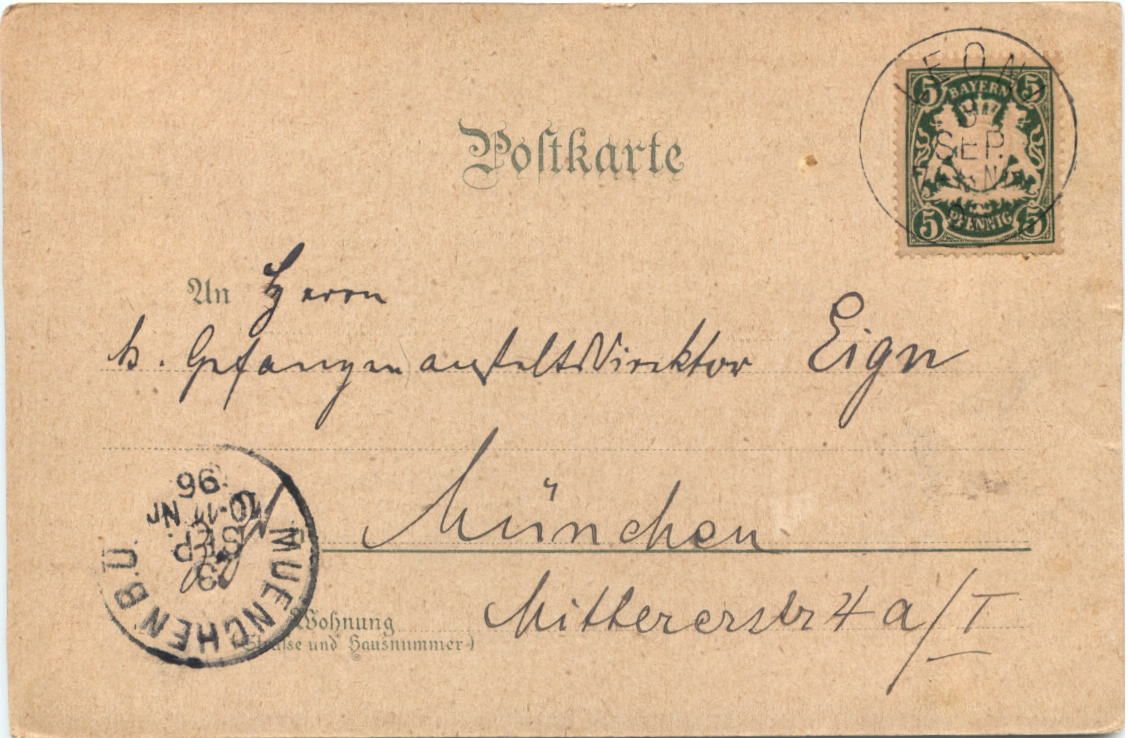 Postkarte
5 BAYERN 5
5 PFENNIG 5
LEONI
SEP.
An Herrn
k. Gefangenanstaltsdirektor Eign
München
Mittererstr 4 a/I
Wohnung
(Straße und Hausnummer)
MUENCHEN B.Ü.
SEP.
10-11 NM
96